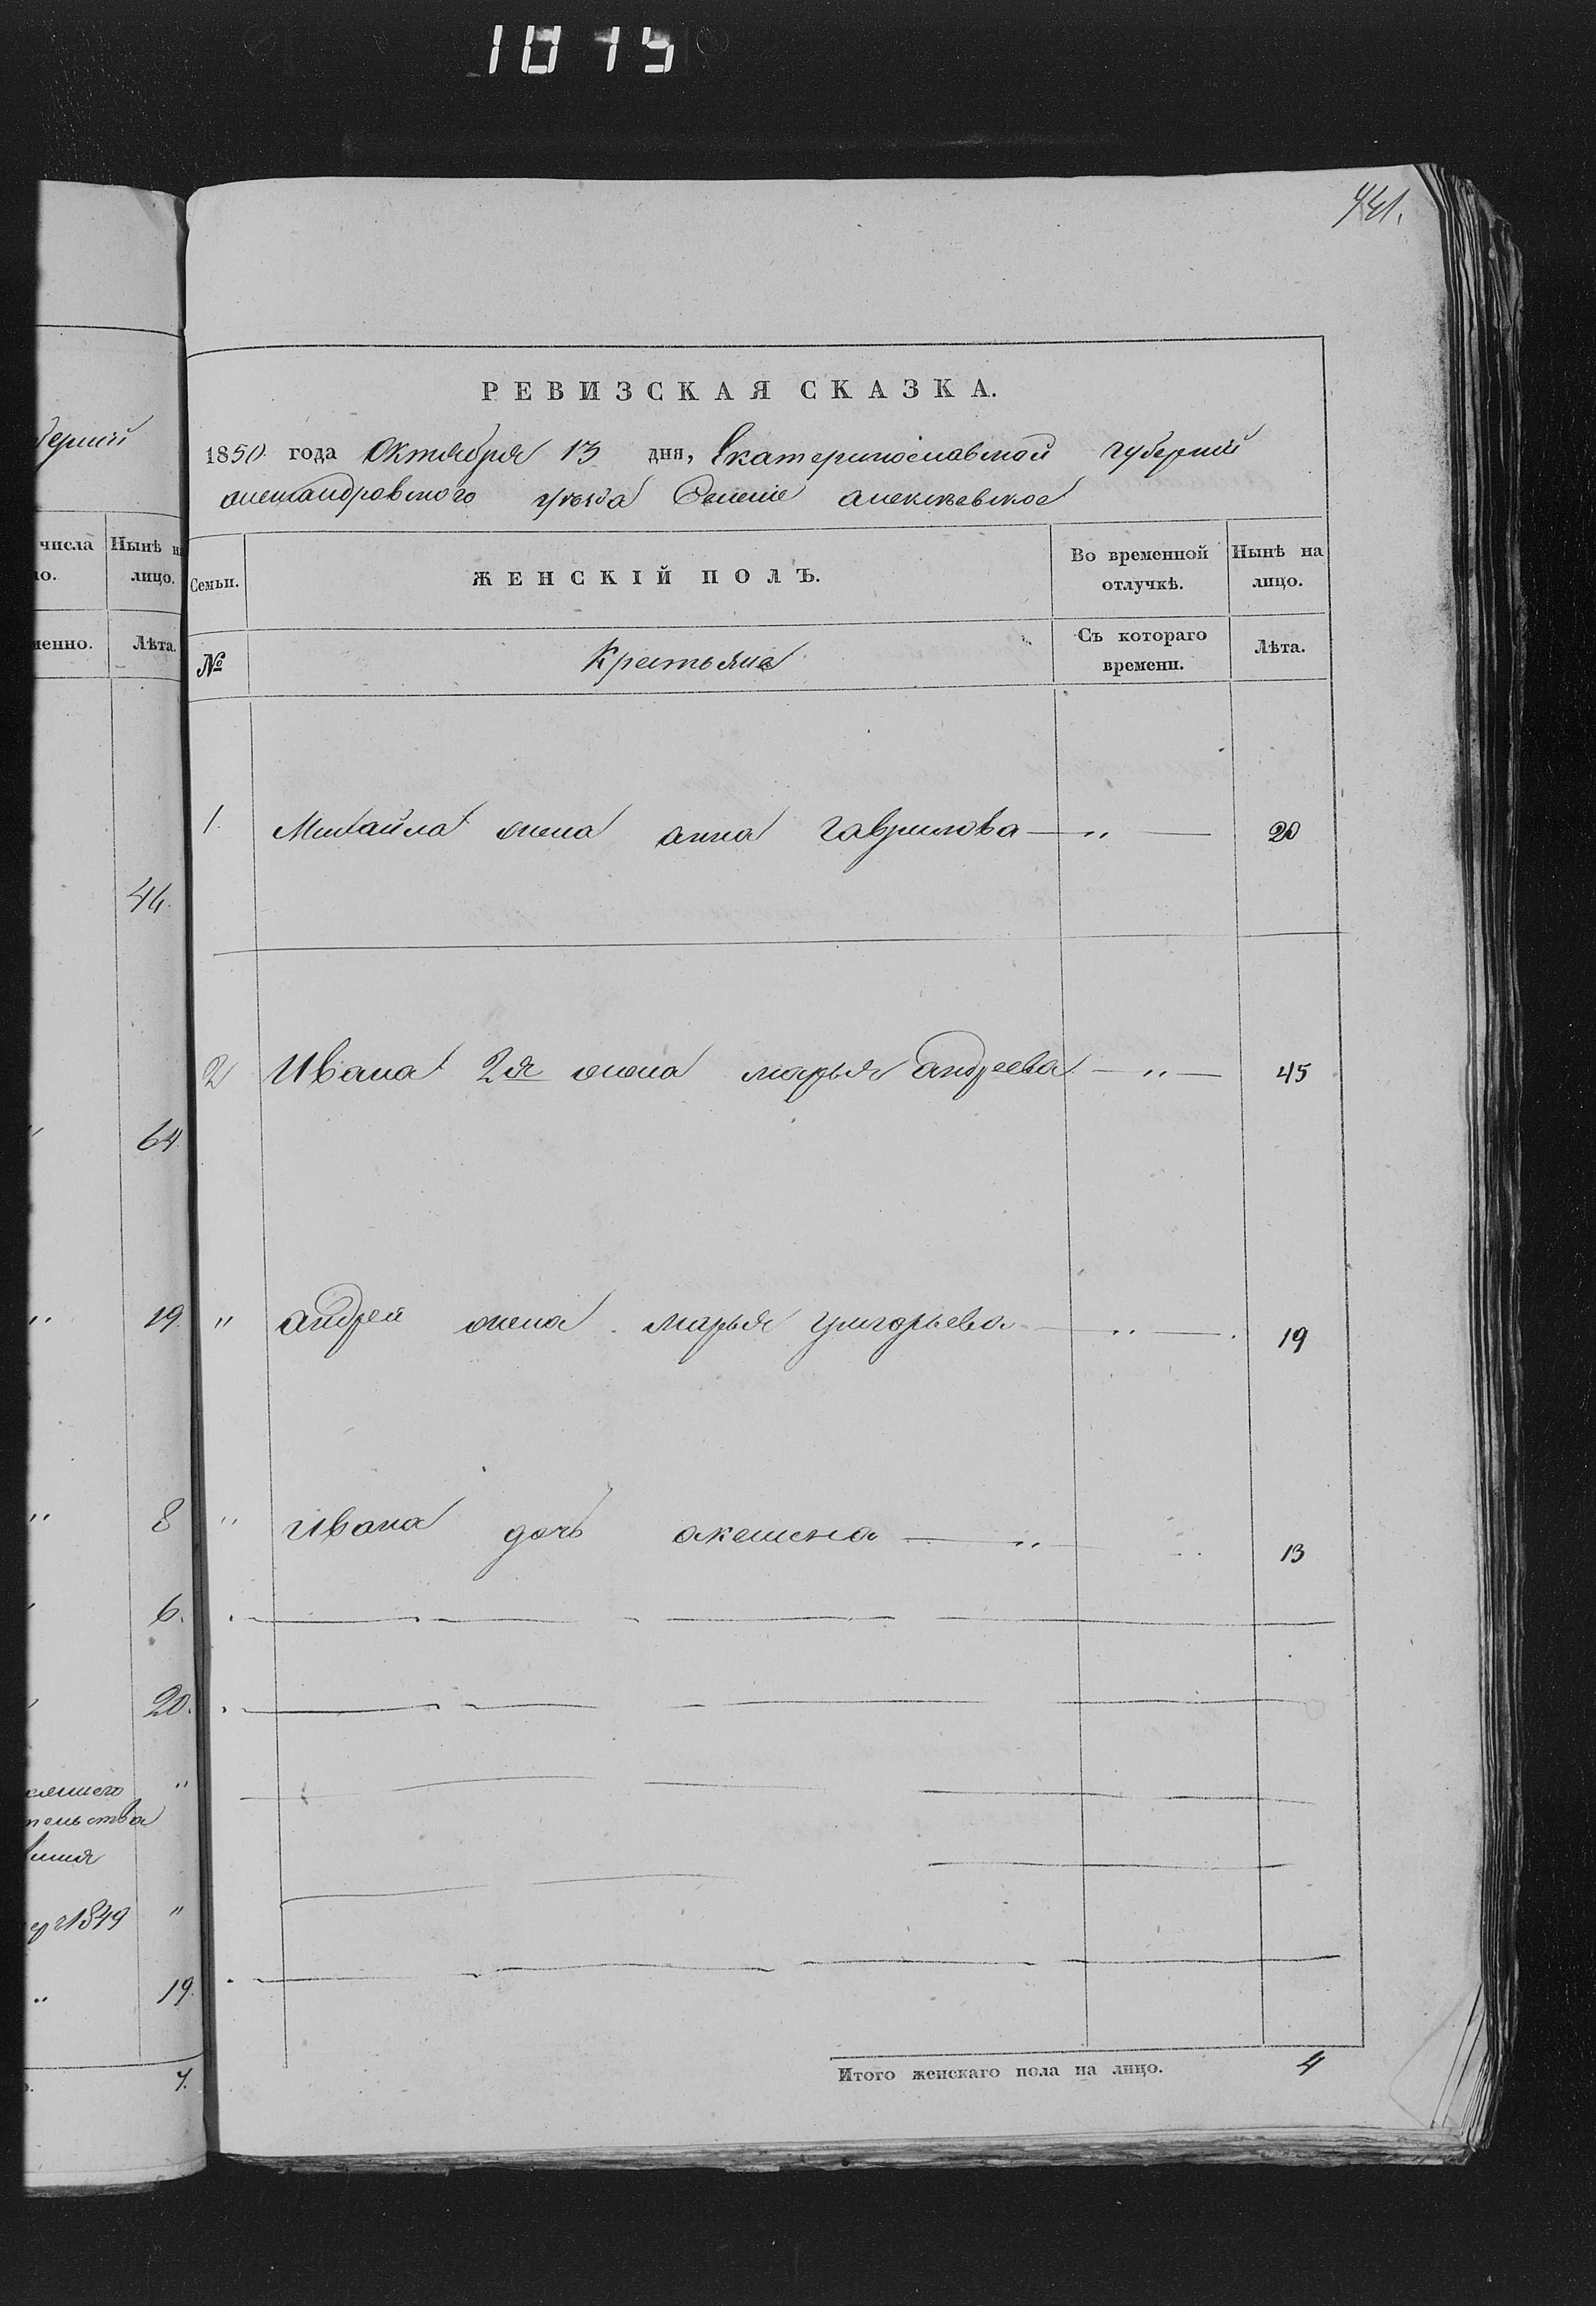 1015
441.
РЕВИЗСКАЯ СКАЗКА.
1850 года Октября 13 дня, Екатеринославской губерній
александровского уезда Селеніе алексѣевское
Семьи. ЖЕНСКІЙ ПОЛЪ. Во временной отлучкѣ. Нынѣ на лицо.
№ Крестьяне Съ котораго времени. Лѣта.
1. Михайла жена анна Гаврилова — " — 20
2 Ивана 2я жена марья андреева — " — 45
" андрея жена марья григорьева — " — 19
" Ивана дочь акелина — " 13
Итого женскаго пола на лицо. 4
берній
числа Нынѣ на
ло. лицо.
менно. Лѣта.
44.
" 64.
" 19.
" 8
" 6.
" 20.
тельства
1849 "
" 19.
7.